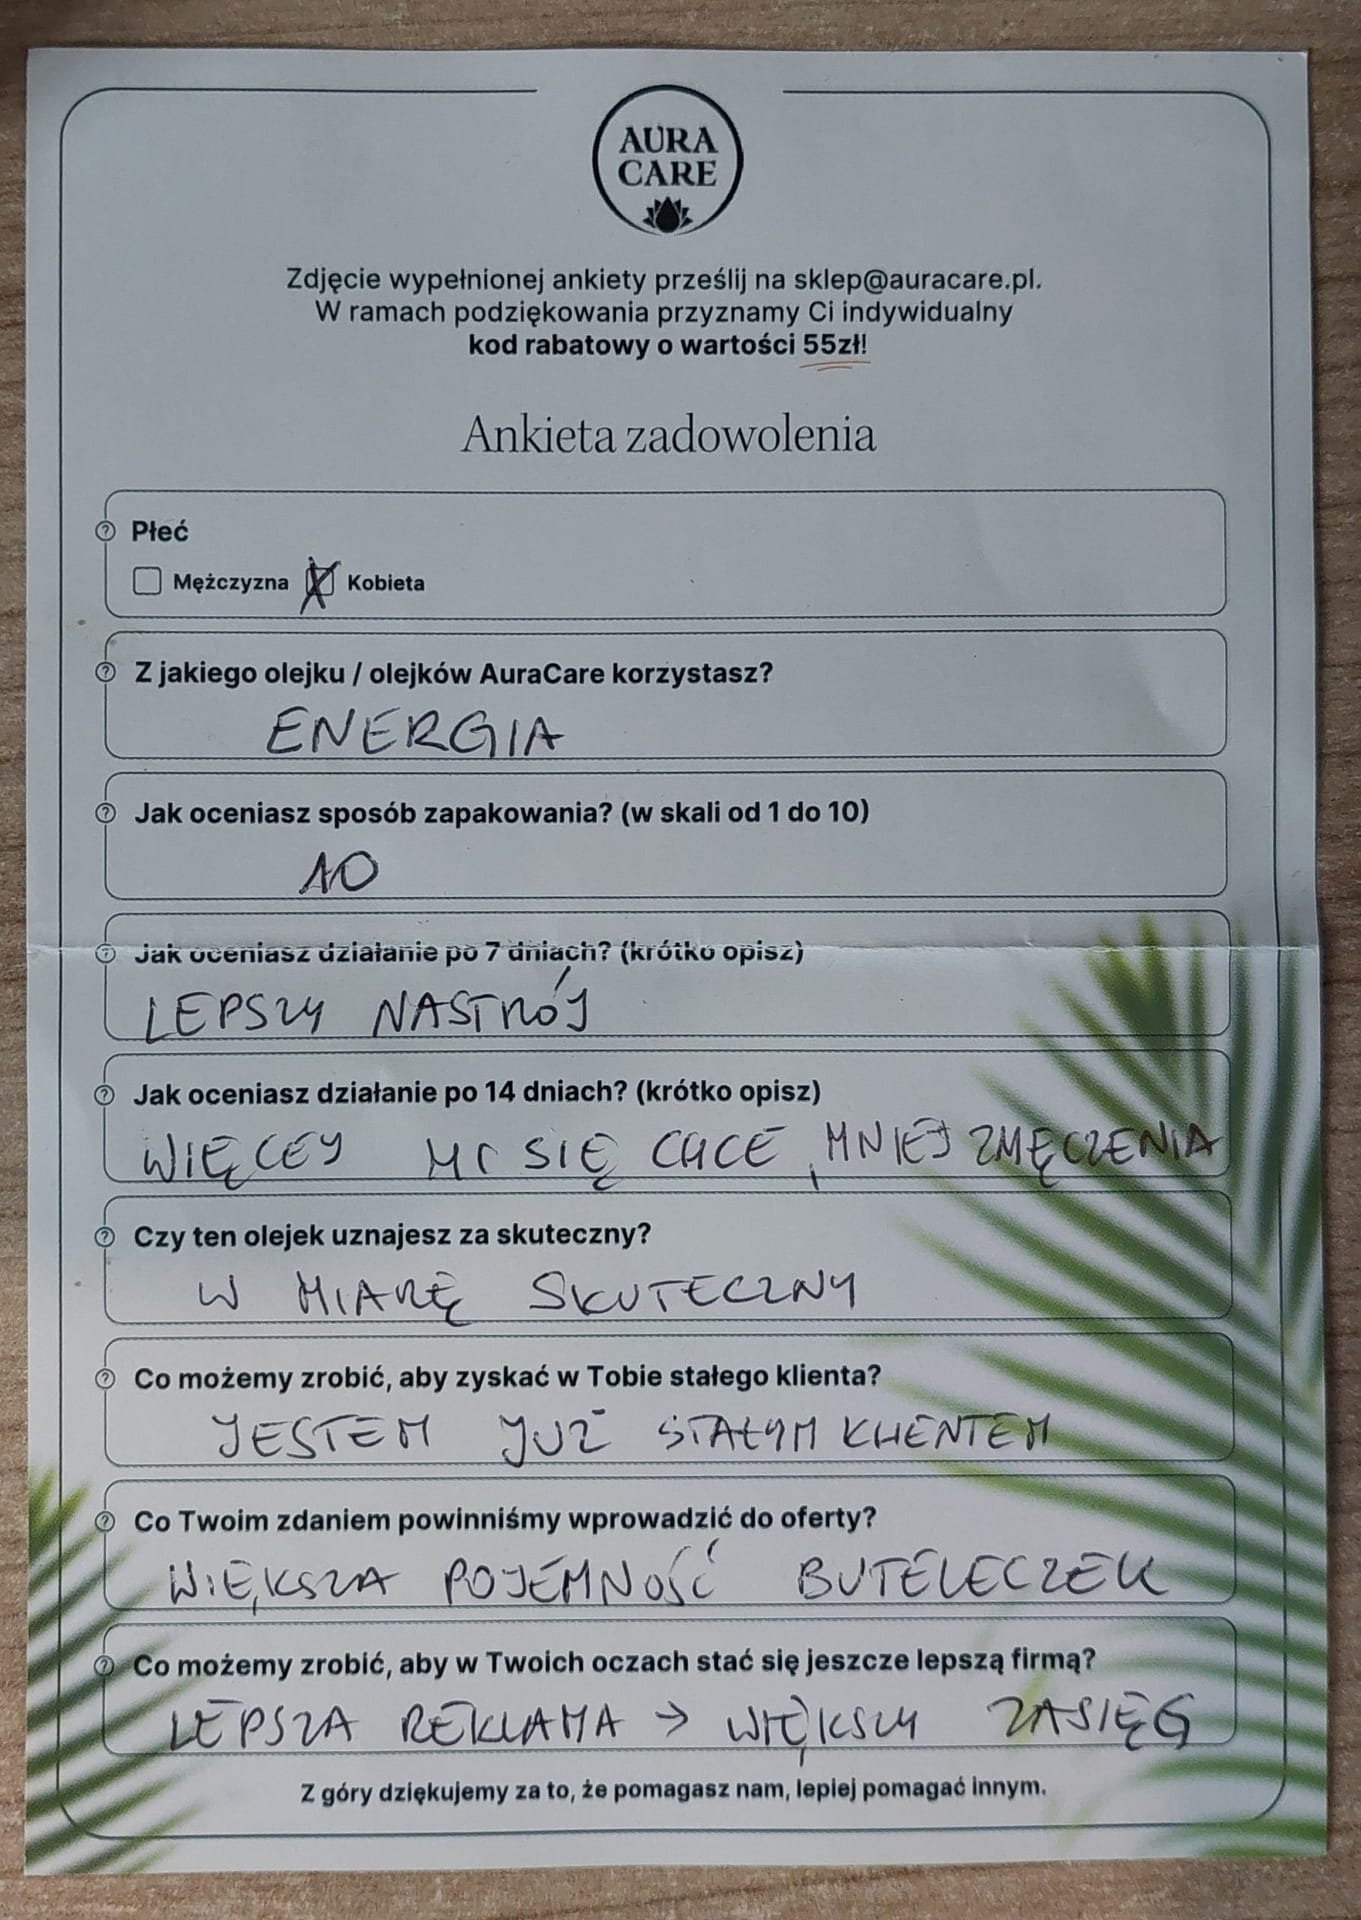 AURA
CARE
Zdjęcie wypełnionej ankiety prześlij na sklep@auracare.pl.
W ramach podziękowania przyznamy Ci indywidualny
kod rabatowy o wartości 55zł!
Ankieta zadowolenia
Płeć
Mężczyzna Kobieta
Z jakiego olejku / olejków AuraCare korzystasz?
ENERGIA
Jak oceniasz sposób zapakowania? (w skali od 1 do 10)
10
Jak oceniasz działanie po 7 dniach? (krótko opisz)
LEPSZY NASTRÓJ
Jak oceniasz działanie po 14 dniach? (krótko opisz)
WIĘCEJ MI SIĘ CHCE, MNIEJ ZMĘCZENIA
Czy ten olejek uznajesz za skuteczny?
W MIARĘ SKUTECZNY
Co możemy zrobić, aby zyskać w Tobie stałego klienta?
JESTEM JUŻ STAŁYM KLIENTEM
Co Twoim zdaniem powinniśmy wprowadzić do oferty?
WIĘKSZA POJEMNOŚĆ BUTELECZEK
Co możemy zrobić, aby w Twoich oczach stać się jeszcze lepszą firmą?
LEPSZA REKLAMA → WIĘKSZY ZASIĘG
Z góry dziękujemy za to, że pomagasz nam, lepiej pomagać innym.